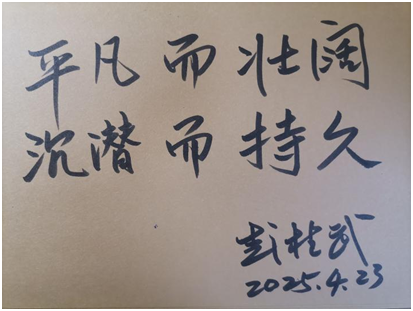 平凡而壮阔
沉潜而持久
彭桂武
2025.4.23